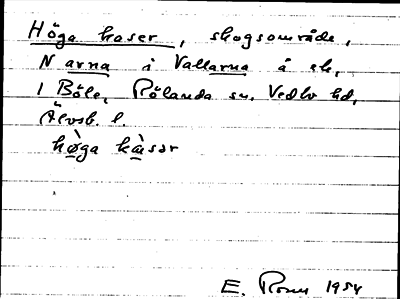 Höga kaser, skogsområde,
N arna i Vallarna å ek,
1 Böle, Rölanda sn. Vedbo hd,
Älvsb. l.
hø̀ga kàsər
E. Rosn 1954